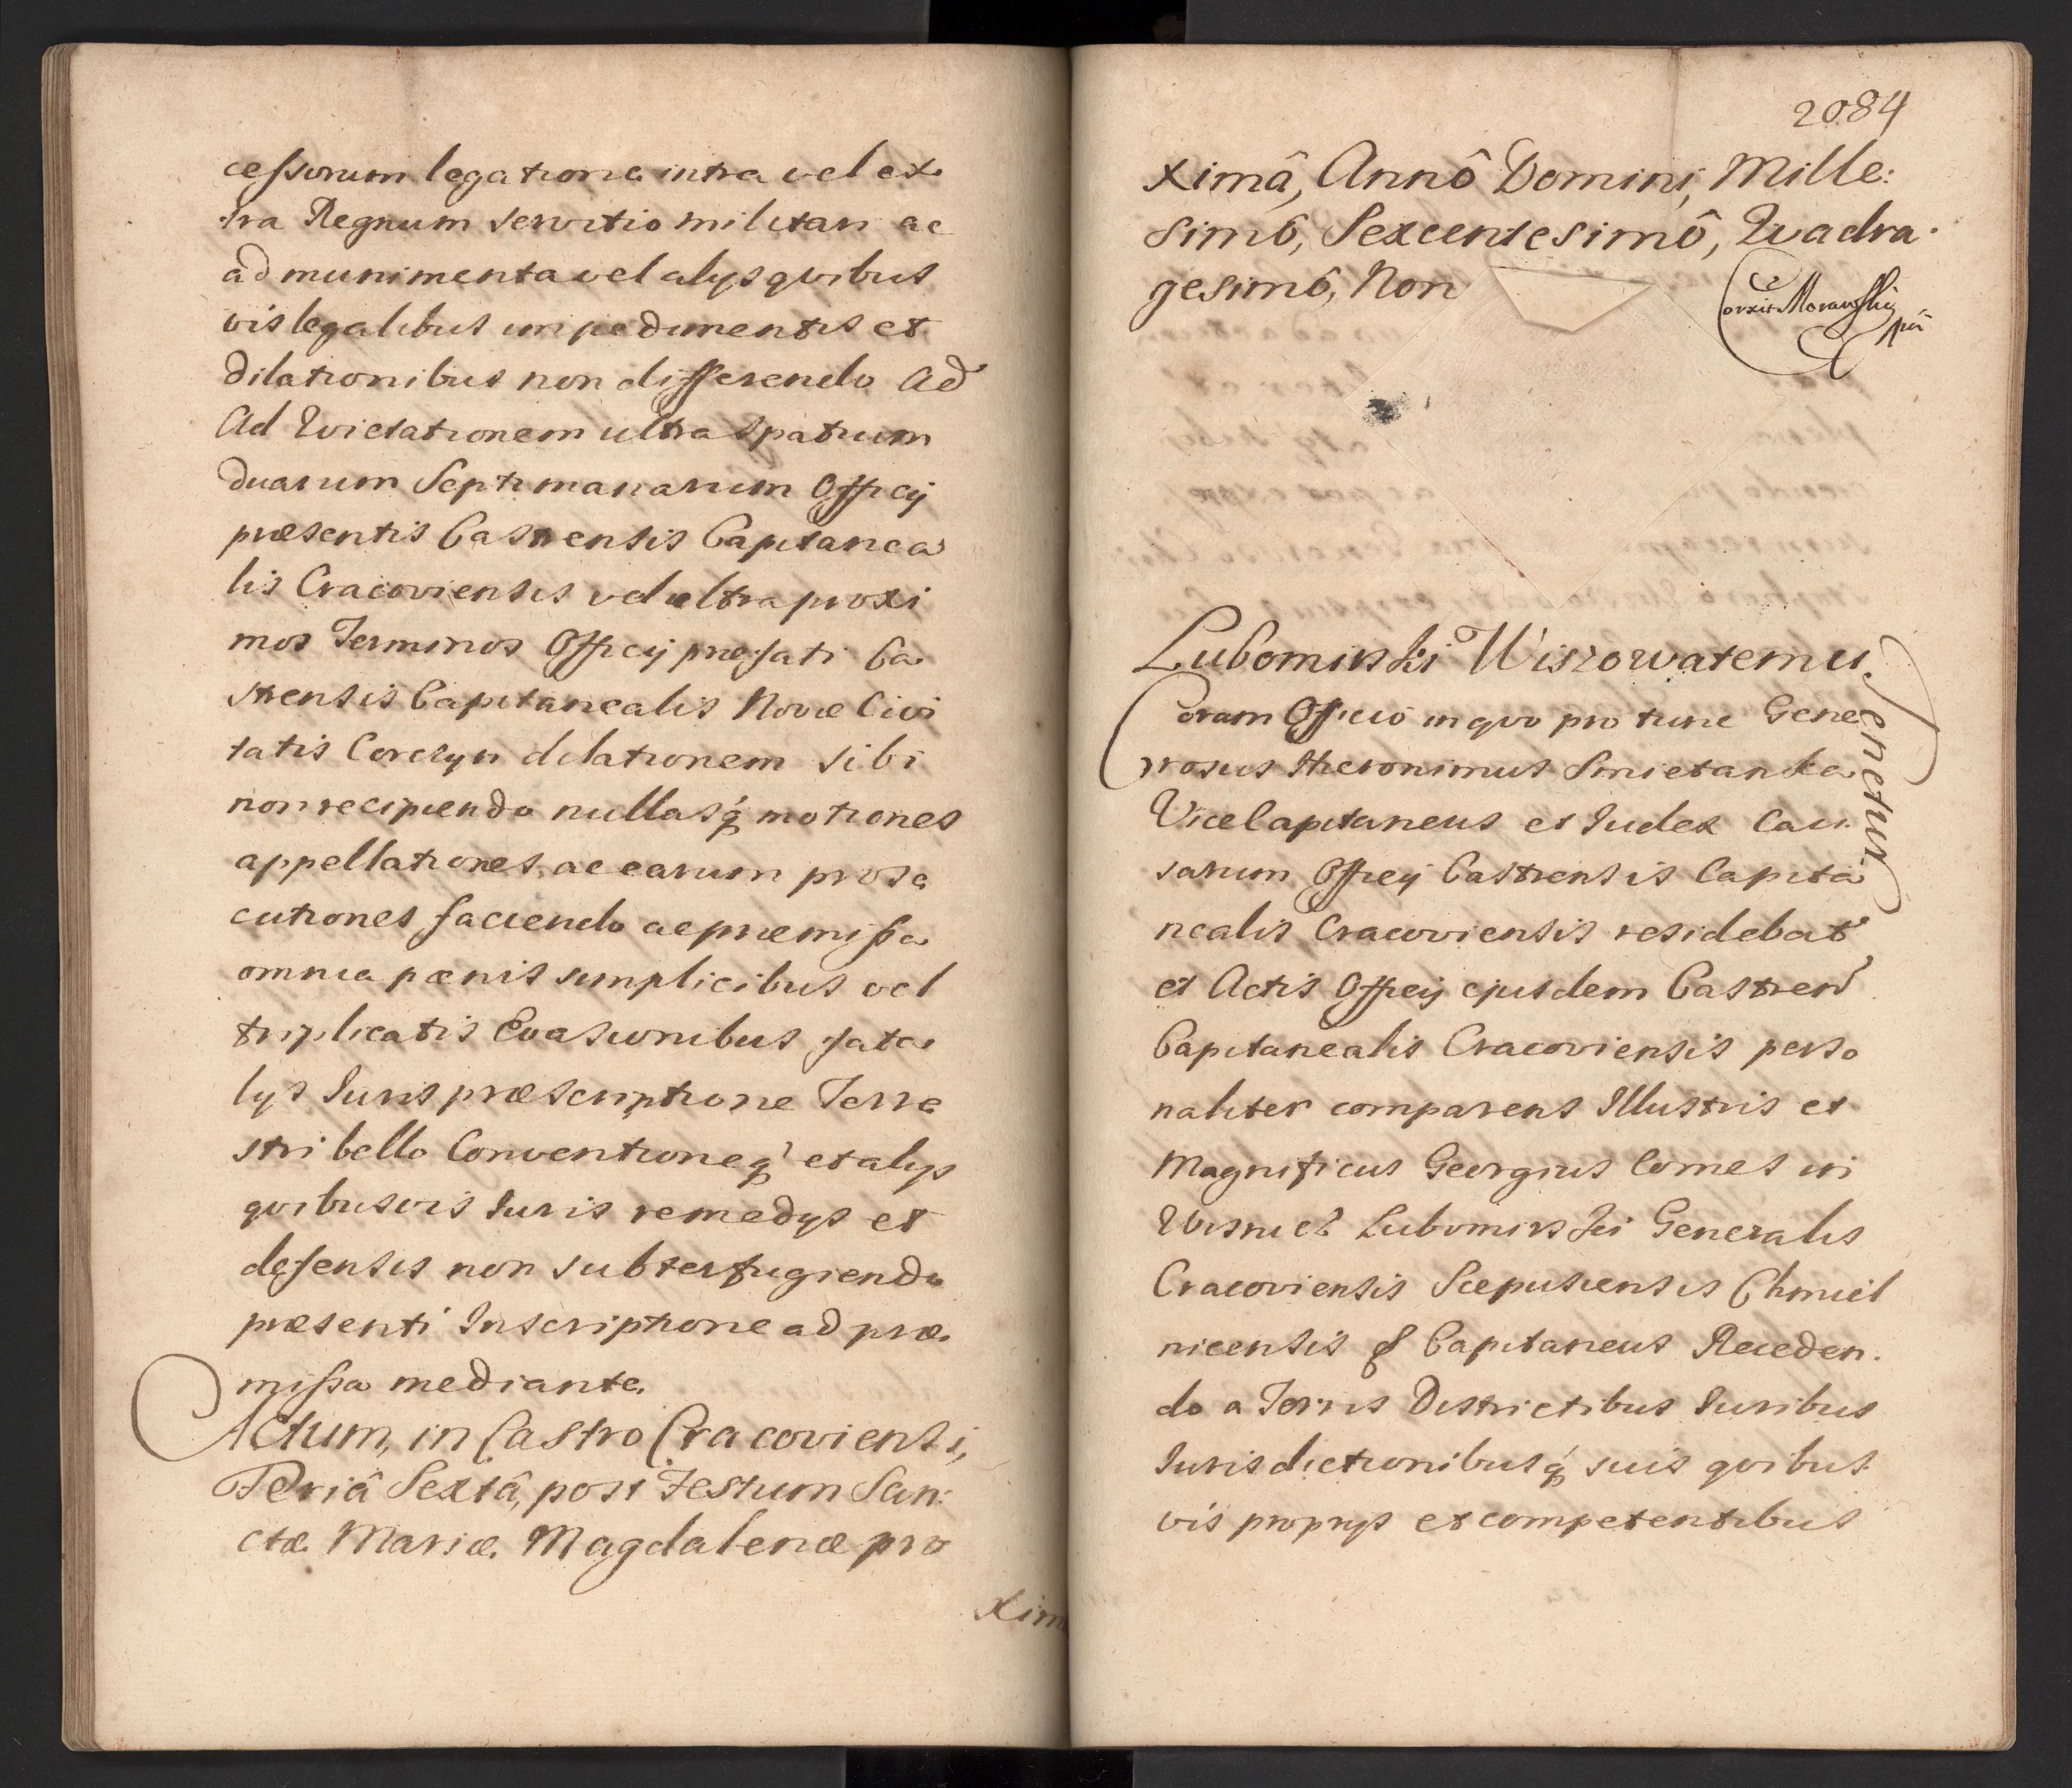 cessorum legatione intra vel ex
tra Regnum servitio militari ac
ad munimenta vel alijs quibus
vis legalibus impedimentis et
dilationibus non differendo Ad
Ad Evictationem ultra spatium
duarum Septimanarum Officij
præsentis Castrensis Capitanea
lis Cracoviensis vel ultra proxi
mos Terminos Officij præfati Ca
strensis Capitanealis Novæ Civi
tatis Corczyn dilationem sibi
non recipiendo nullasq́ motiones
appellationes ac earum prose
cutiones faciendo ac præmissa
omnia pænis simplicibus vel
triplicatis Evasionibus fata
lys Iuris præscriptione Terre
stri bello Conventioneq́ et alys
quibusvis Iuris remedys et
defensis non subterfugiendo
præsenti Inscriptione ad præ
missa mediante.
Actum, in Castro Cracoviensi,
Feriâ Sextâ, post Festum San:
ctæ Mariæ Magdalenæ pro
xim
2084
ximâ, Annô Domini, Mille:
simô, Sexcentesimô, Quadra
gesimô, Non
Corexit Morawski
mp
Lubomirski Wiszowatemu
tenetur
Coram Officio in quo pro tunc Gene
rosus Hieronimus Smietanka
ViceCapitaneus et Iudex Cau
sarum Officij Castrensis Capita
nealis Cracoviensis residebat
et Actis Officij ejusdem Castren
Capitanealis Cracoviensis perso
naliter comparens Illustris et
Magnificus Georgius Comes in
Wisnicz Lubomirski Generalis
Cracoviensis Scepusiensis Chmiel
nicensis & Capitaneus Receden
do a Terris Districtibus Iuribus
Iurisdictionibusq́ suis quibus
vis proprys et competentibus